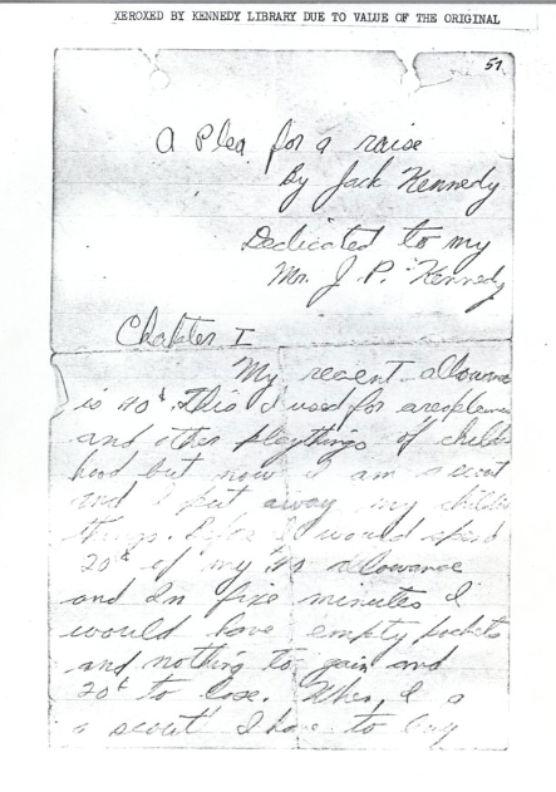 XEROXED BY KENNEDY LIBRARY DUE TO VALUE OF THE ORIGINAL
51
A Plea for a raise
By Jack Kennedy
Dedicated to my
Mr. J. P. Kennedy
Chapter I
My recent allowance
is 40¢. This I used for areoplanes
and other playthings of child-
hood but now I am a scout
and I put away my childish
things. Before I would spend
20¢ of my ¢40 allowance
and In five minutes I
would have empty pockets
and nothing to gain and
20¢ to lose. When I a
a scout I have to buy